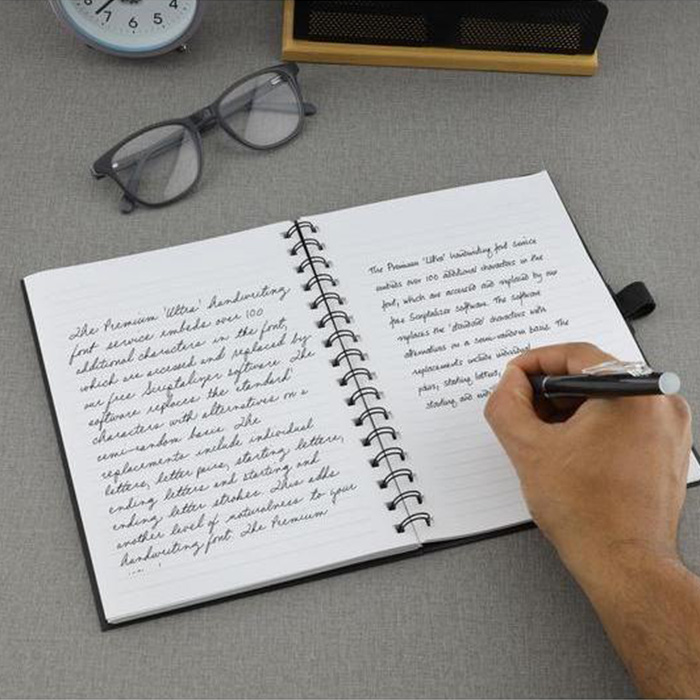 8 7 6 5 4
The Premium 'Ultra' handwriting
font service embeds over 100
additional characters in the font,
which are accessed and replaced by
our free Scriptalizer software. The
software replaces the 'standard'
characters with alternatives on a
semi-random basis. The
replacements include individual
letters, letter pairs, starting letters,
ending letters and starting and
ending letter strokes. This adds
another level of naturalness to your
handwriting font. The Premium
....
The Premium 'Ultra' handwriting font service
embeds over 100 additional characters in the
font, which are accessed and replaced by our
free Scriptalizer software. The software
replaces the 'standard' characters with
alternatives on a semi-random basis. The
replacements include individual
pairs, starting letters,
starting and